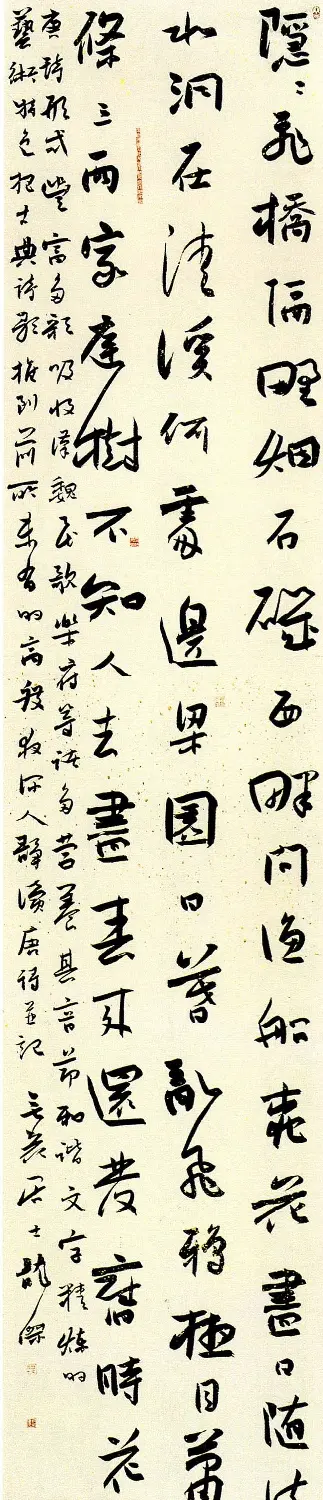 隱〻飛橋隔野烟石磯西畔問漁船桃花盡日随流
水洞在清溪何處邊梁園日暮亂飛鴉極目蕭
條三兩家庭樹不知人去盡春来還發舊時花
唐詩形式豐富多彩吸收漢魏民歌樂府等諸多营養其音節和谐文字精煉的
藝術特色把古典詩歌推到前所未有的高發夜深人靜演唐詩並記
居士